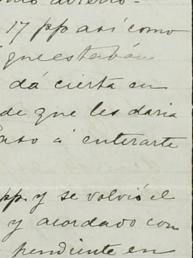 17 ppo así como
que estaban
dá cierta en
de que les daria
paso á enterarte
pp. y se volvió el
y acordado con
pendiente en